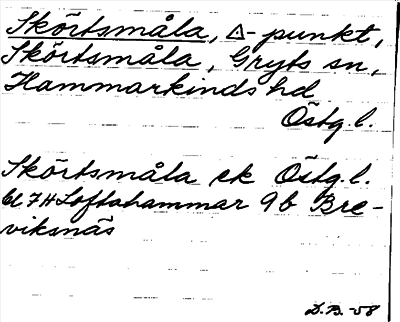 Skörtsmåla, △-punkt,
Skörtsmåla, Gryts sn,
Hammarkinds hd
Östg. l.
Skörtsmåla ek Östg. l.
bl 7H Loftahammar 9b Bre-
viksnäs
D.B. -58